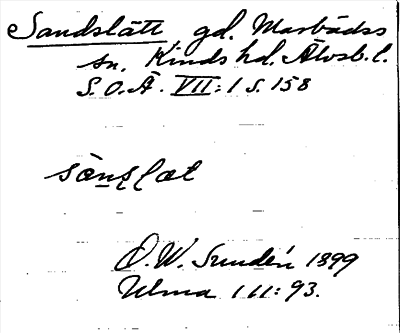 Sandslätt gd. Marbäcks
sn. Kinds hd. Älvsb. l.
S.O.Ä. VII:1 s. 158
O.W. Sundén 1899
Ulma 111:93.